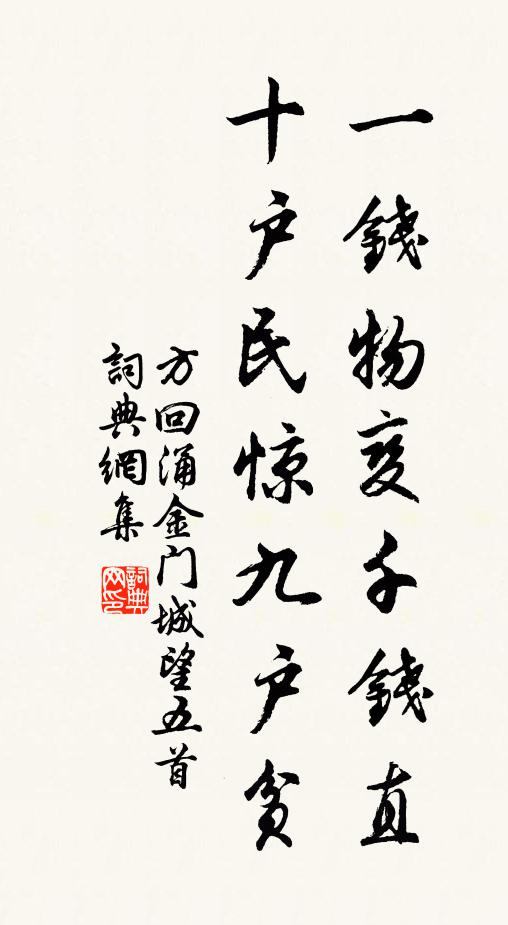 一錢物变千錢直
十户民惊九户贫
方回涌金门城望五首
詞典網集
詞典网印